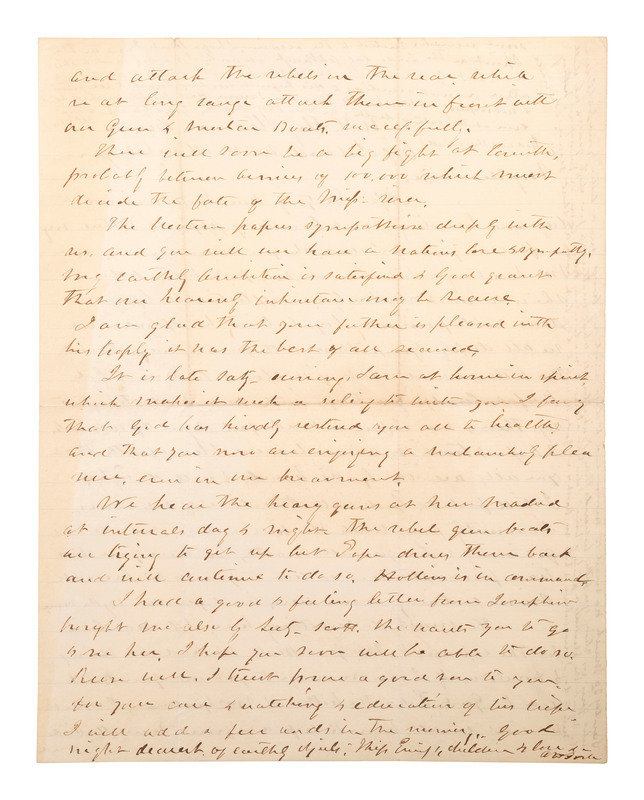 and attack the rebels in the rear, while
we at long range attack them in front with
our Gun & Mortar Boats, successfully.
There will soon be a big fight at Corinth,
probably between armies of 100,000 which must
decide the fate of the Miss. river.
The Western papers sympathise deeply with
us, and you will, we have a nations love & sympathy.
My earthly ambition is satisfied & God grant
that our heavenly inheritance may be secure.
I am glad that your father is pleased with
his it was the best of all
It is late Saty evening, I am at home in spirit
which makes it such a relief to write you I pray
that God has kindly restored you all to health
and that you now are enjoying a melancholy plea
sure, even in our bereavement.
We hear the heavy guns at New Madrid
at intervals day & night. The rebel gun boats
are trying to get up but Pope drives them back
and will continue to do so. Hollins is in command.
I had a good & feeling letter from Josephine
brought me also by Scott. She wants you to go
& see her. I hope you soon will be able to do so.
will, I trust prove a good son to you
for your care & watching & education of his
I will add a few words in the morning. Good
night dearest of earthly objects, & children & love